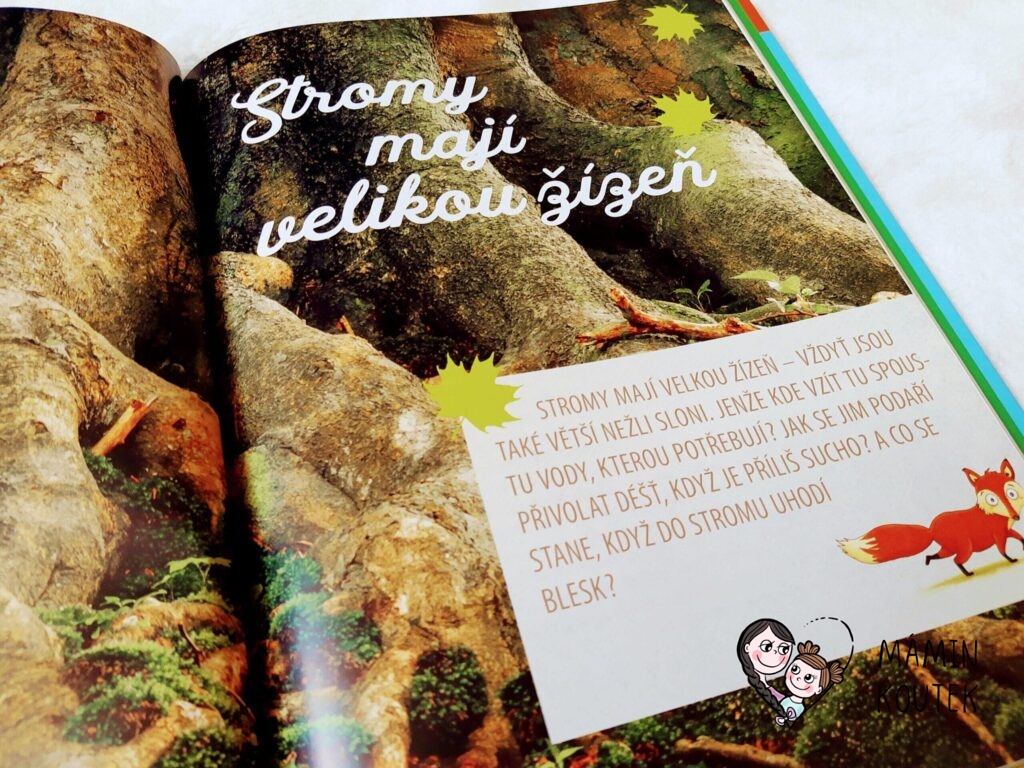 Stromy
mají
velikou žízeň
STROMY MAJÍ VELKOU ŽÍZEŇ – VŽDYŤ JSOU
TAKÉ VĚTŠÍ NEŽLI SLONI. JENŽE KDE VZÍT TU SPOUS-
TU VODY, KTEROU POTŘEBUJÍ? JAK SE JIM PODAŘÍ
PŘIVOLAT DÉŠŤ, KDYŽ JE PŘÍLIŠ SUCHO? A CO SE
STANE, KDYŽ DO STROMU UHODÍ
BLESK?
MÁMIN
KOUTEK